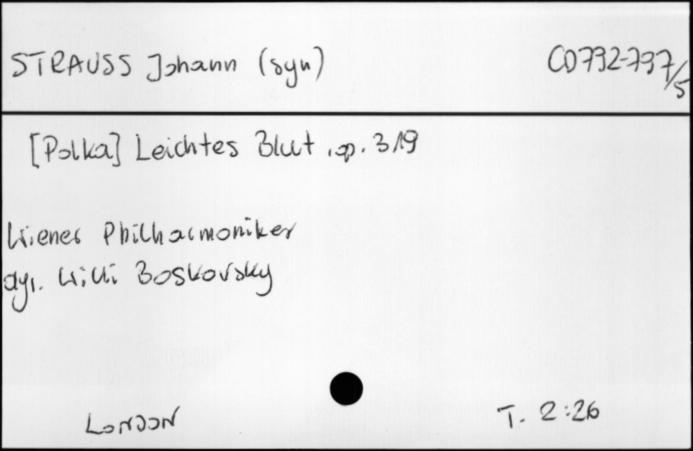 STRAUSS Johann (syn) CD792-797/5
[Polka] Leichtes Blut, op. 319
Wiener Philharmoniker
dyr. Willi Boskovsky
LONDON T. 2:26